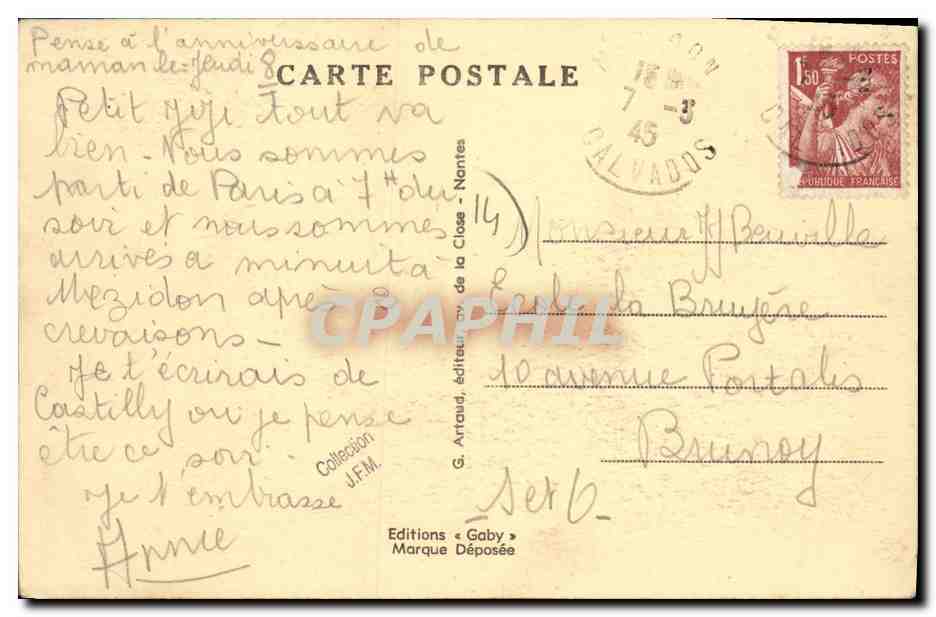 Pense à l'anniversaire de
maman le Jeudi 8
CARTE POSTALE
Petit JoJo Tout va
bien - Nous sommes
parti de Paris à 7H du
soir et nous sommes
arrivés à minuit à
Mezidon après 2
crevaisons -
Je t'écrirais de
Castilly ou je pense
être ce soir.
Je t'embrasse
Collection
J.F.M.
G. Artaud, éditeur, de la Close - Nantes
Editions « Gaby »
Marque Déposée
7 -3
45
CALVADOS
1,50
POSTES
REPUBLIQUE FRANÇAISE
14
Monsieur J Beuville
Ecole la Bruyère
10 avenue Portalis
Brunoy
S et O
CPAPHIL